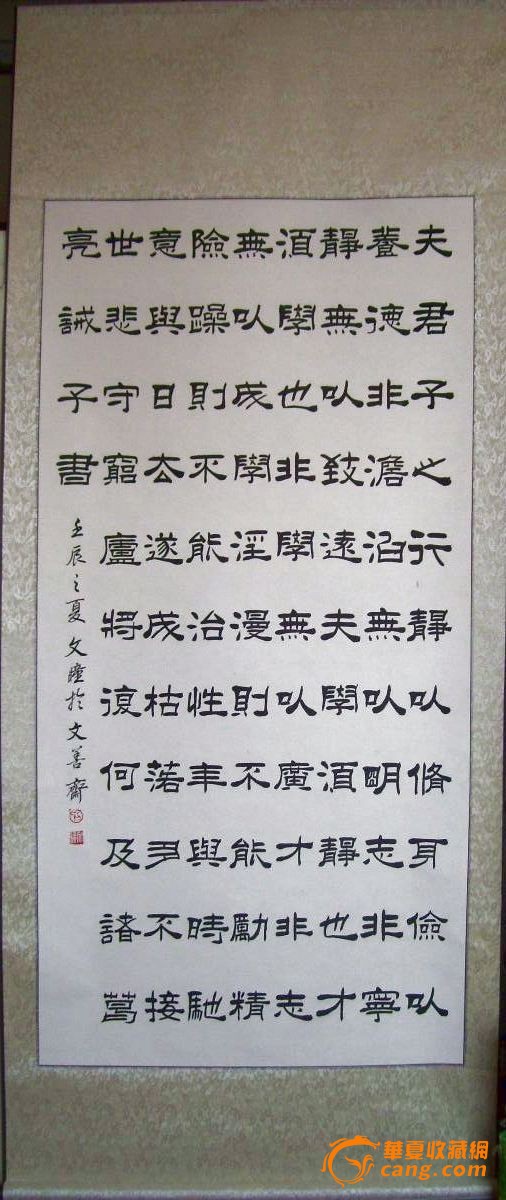 夫君子之行靜以脩身儉以
養德非澹泊無以明志非寧
靜無以致遠夫學須靜也才
須學也非學無以廣才非志
無以成學淫漫則不能勵精
險躁則不能治性年與時馳
意與日去遂成枯落多不接
世悲守窮廬將復何及諸葛
亮誡子書
壬辰之夏文瞳於文善齋
華夏收藏網
cang.com